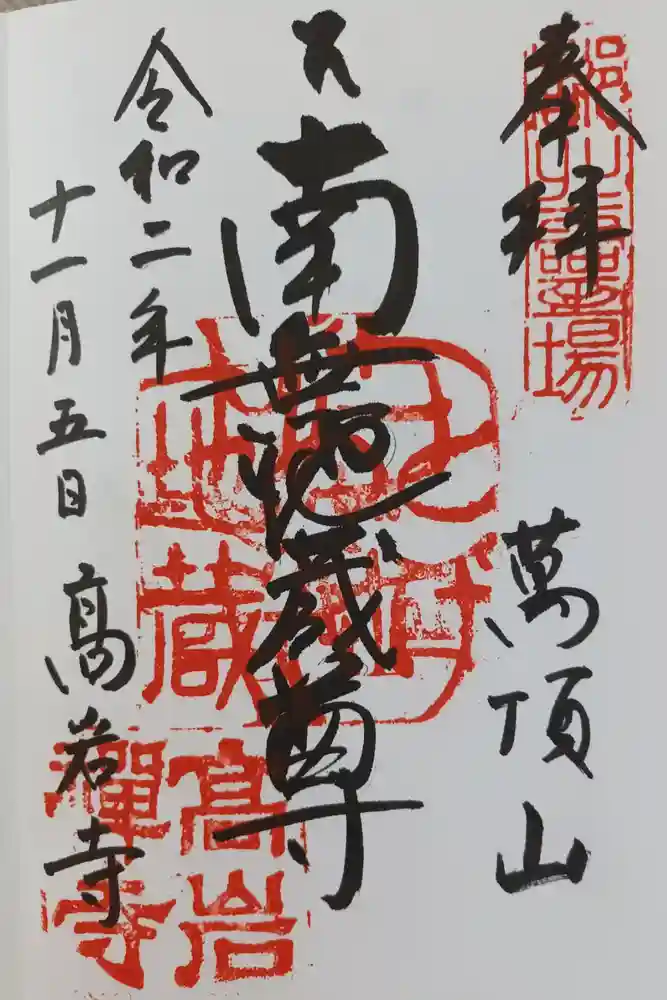 奉拝
萬頂山
南無地蔵尊
令和二年
十一月五日 高岩寺
霊場
地蔵
高岩
禅寺